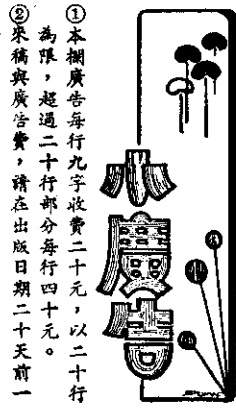 小廣告
①本欄廣告每行九字收費二十元，以二十行
為限，超過二十行部分每行四十元。
②來稿與廣告費，請在出版日期二十天前一